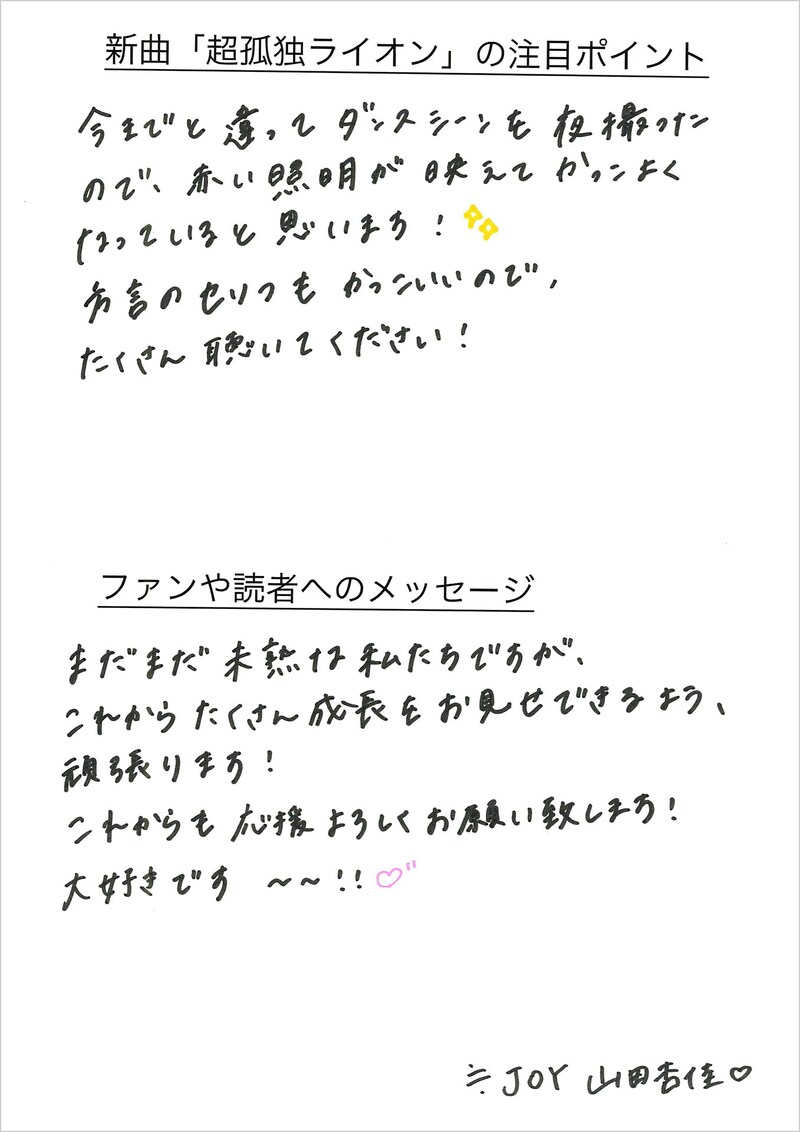 新曲「超孤独ライオン」の注目ポイント
今までと違ってダンスシーンを夜撮った
ので、赤い照明が映えてかっこよく
なっていると思います!
方言のセリフもかっこいいので,
たくさん聴いてください!
ファンや読者へのメッセージ
まだまだ未熟な私たちですが、
これからたくさん成長をお見せできるよう、
頑張ります!
これからも応援よろしくお願い致します!
大好きです 〜〜!!♡"
≒JOY 山田杏佳♡